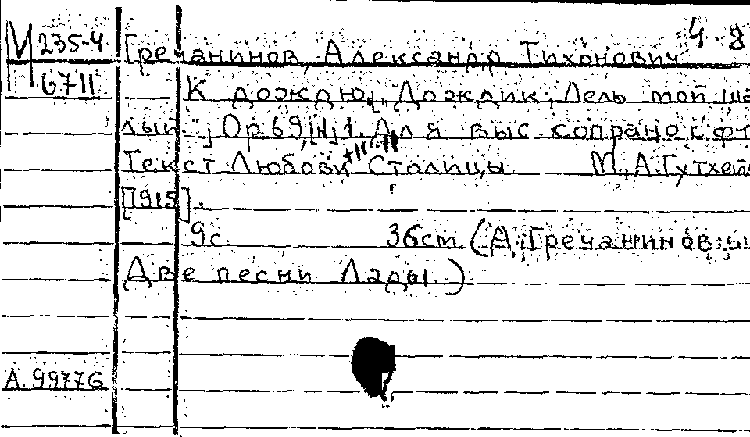 4-8
М 235-4 Гречанинов, Александр Тихонович
6711 К дождю. "Дождик, Лель мой ма
лый"; Op 69, N 1. Для выс сопрано с фп
Текст Любови Столицы М., А. Гутхейл
[1915].
9с. 36cm (А. Гречанинов:
Две песни Лады.)
А. 99776